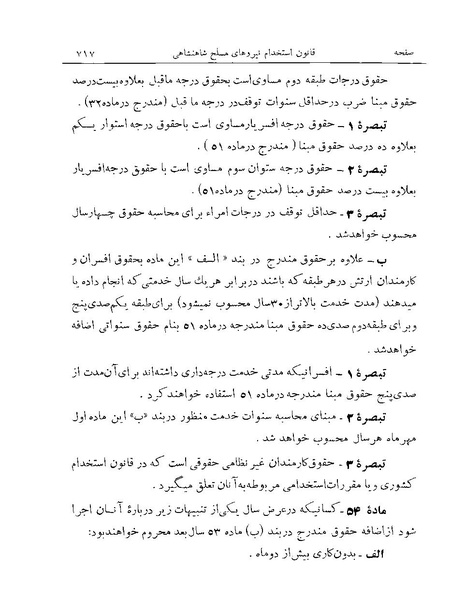 صفحه قانون استخدام نیروهای مسلح شاهنشاهی ۷۱۷
حقوق درجات طبقه دوم مساوی‌است بحقوق درجه ماقبل بعلاوه‌بیست‌درصد
حقوق مبنا ضرب درحداقل سنوات توقف‌در درجه ما قبل (مندرج درماده۳۲) .
تبصرهٔ ۱ – حقوق درجه افسریارمساوی است باحقوق درجه استوار یکم
بعلاوه ده درصد حقوق مبنا ( مندرج درماده ۵۱ ) .
تبصرهٔ ۲ – حقوق درجه ستوان سوم مساوی است با حقوق درجه‌افسریار
بعلاوه بیست درصد حقوق مبنا (مندرج درماده۵۱) .
تبصرهٔ ۳ - حداقل توقف در درجات امراء برای محاسبه حقوق چهارسال
محسوب خواهدشد .
ب – علاوه برحقوق مندرج در بند « الف » این ماده بحقوق افسران و
کارمندان ارتش درهرطبقه که باشند دربرابر هریك سال خدمتی که انجام داده یا
میدهند (مدت خدمت بالاتراز۳۰سال محسوب نمیشود) برای‌طبقه یکم‌صدی‌پنج
وبرای طبقه‌دوم صدی‌ده حقوق مبنا مندرجه درماده ۵۱ بنام حقوق سنواتی اضافه
خواهدشد .
تبصرهٔ ۱ – افسرانیکه مدتی خدمت درجه‌داری داشته‌اند برای‌آن‌مدت از
صدی‌پنج حقوق مبنا مندرجه درماده ۵۱ استفاده خواهند کرد .
تبصرهٔ ۲ - مبنای محاسبه سنوات خدمت منظور دربند «ب» این ماده اول
مهرماه هرسال محسوب خواهد شد .
تبصرهٔ ۳ – حقوق‌کارمندان غیر نظامی حقوقی است که در قانون استخدام
کشوری و یا مقررات‌استخدامی مربوطه‌به‌آنان تعلق میگیرد .
مادهٔ ۵۴ – کسانیکه درعرض سال یکی‌از تنبیهات زیر دربارهٔ آنـان اجرا
شود ازاضافه حقوق مندرج دربند (ب) ماده ۵۳ سال‌بعد محروم خواهندبود:
الف - بدون‌کاری بیش‌از دوماه .